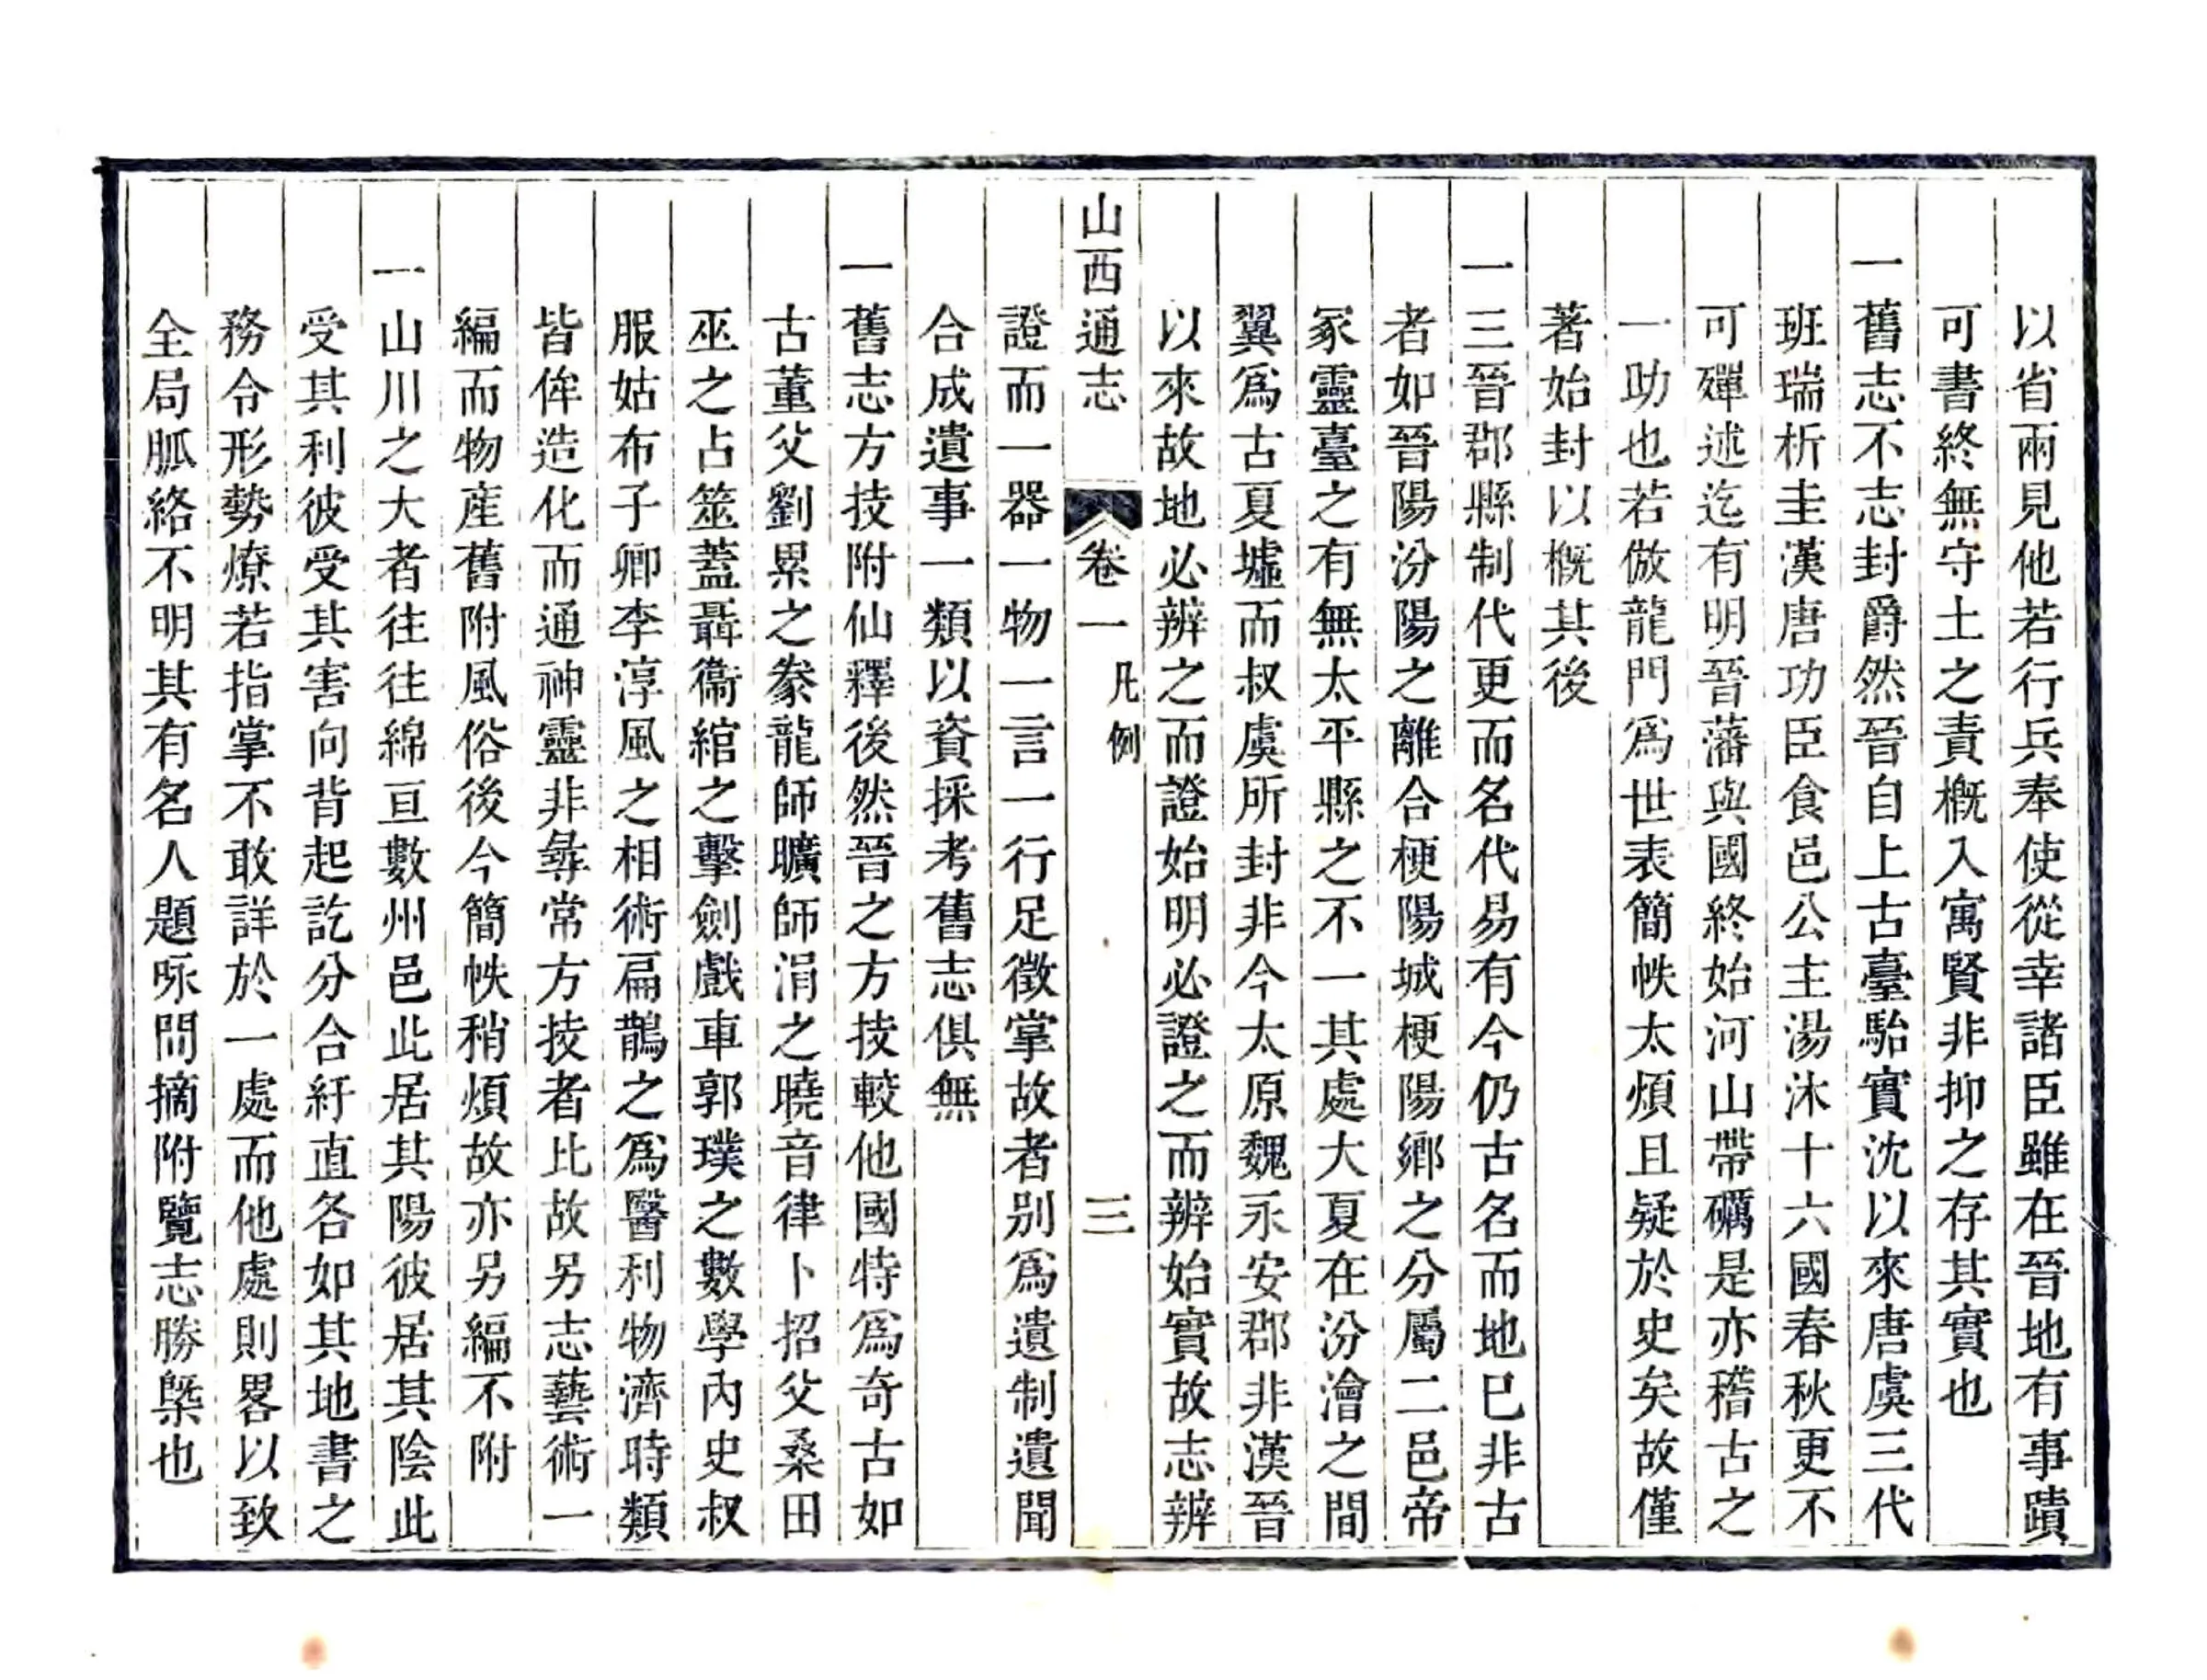 以省兩見他若行兵奉使從幸諸臣雖在晉地有事蹟
可書終無守土之責槪入寓賢非抑之存其實也
一舊志不志封爵然晉自上古臺駘實沈以來唐虞三代
班瑞析圭漢唐功臣食邑公主湯沐十六國春秋更不
可殫述迄有明晉藩與國終始河山帶礪是亦稽古之
一助也若倣龍門爲世表簡帙太煩且疑於史矣故僅
著始封以槪其後
一三晉郡縣制代更而名代易有今仍古名而地已非古
者如晉陽汾陽之離合梗陽城梗陽鄉之分屬二邑帝
冢靈臺之有無太平縣之不一其處大夏在汾澮之間
翼爲古夏墟而叔虞所封非今太原魏永安郡非漢晉
以來故地必辨之而證始明必證之而辨始實故志辨
山西通志 卷一 凡例 三
證而一器一物一言一行足徵掌故者別爲遺制遺聞
合成遺事一類以資採考舊志俱無
一舊志方技附仙釋後然晉之方技較他國特爲奇古如
古董父劉累之豢龍師曠師涓之曉音律卜招父桑田
巫之占筮蓋聶衞綰之擊劍戲車郭璞之數學內史叔
服姑布子卿李淳風之相術扁鵲之爲醫利物濟時類
皆侔造化而通神靈非尋常方技者比故另志藝術一
編而物産舊附風俗後今簡帙稍煩故亦另編不附
一山川之大者往往綿亘數州邑此居其陽彼居其陰此
受其利彼受其害向背起訖分合紆直各如其地書之
務令形勢燎若指掌不敢詳於一處而他處則畧以致
全局脈絡不明其有名人題咏間摘附覽志勝槩也